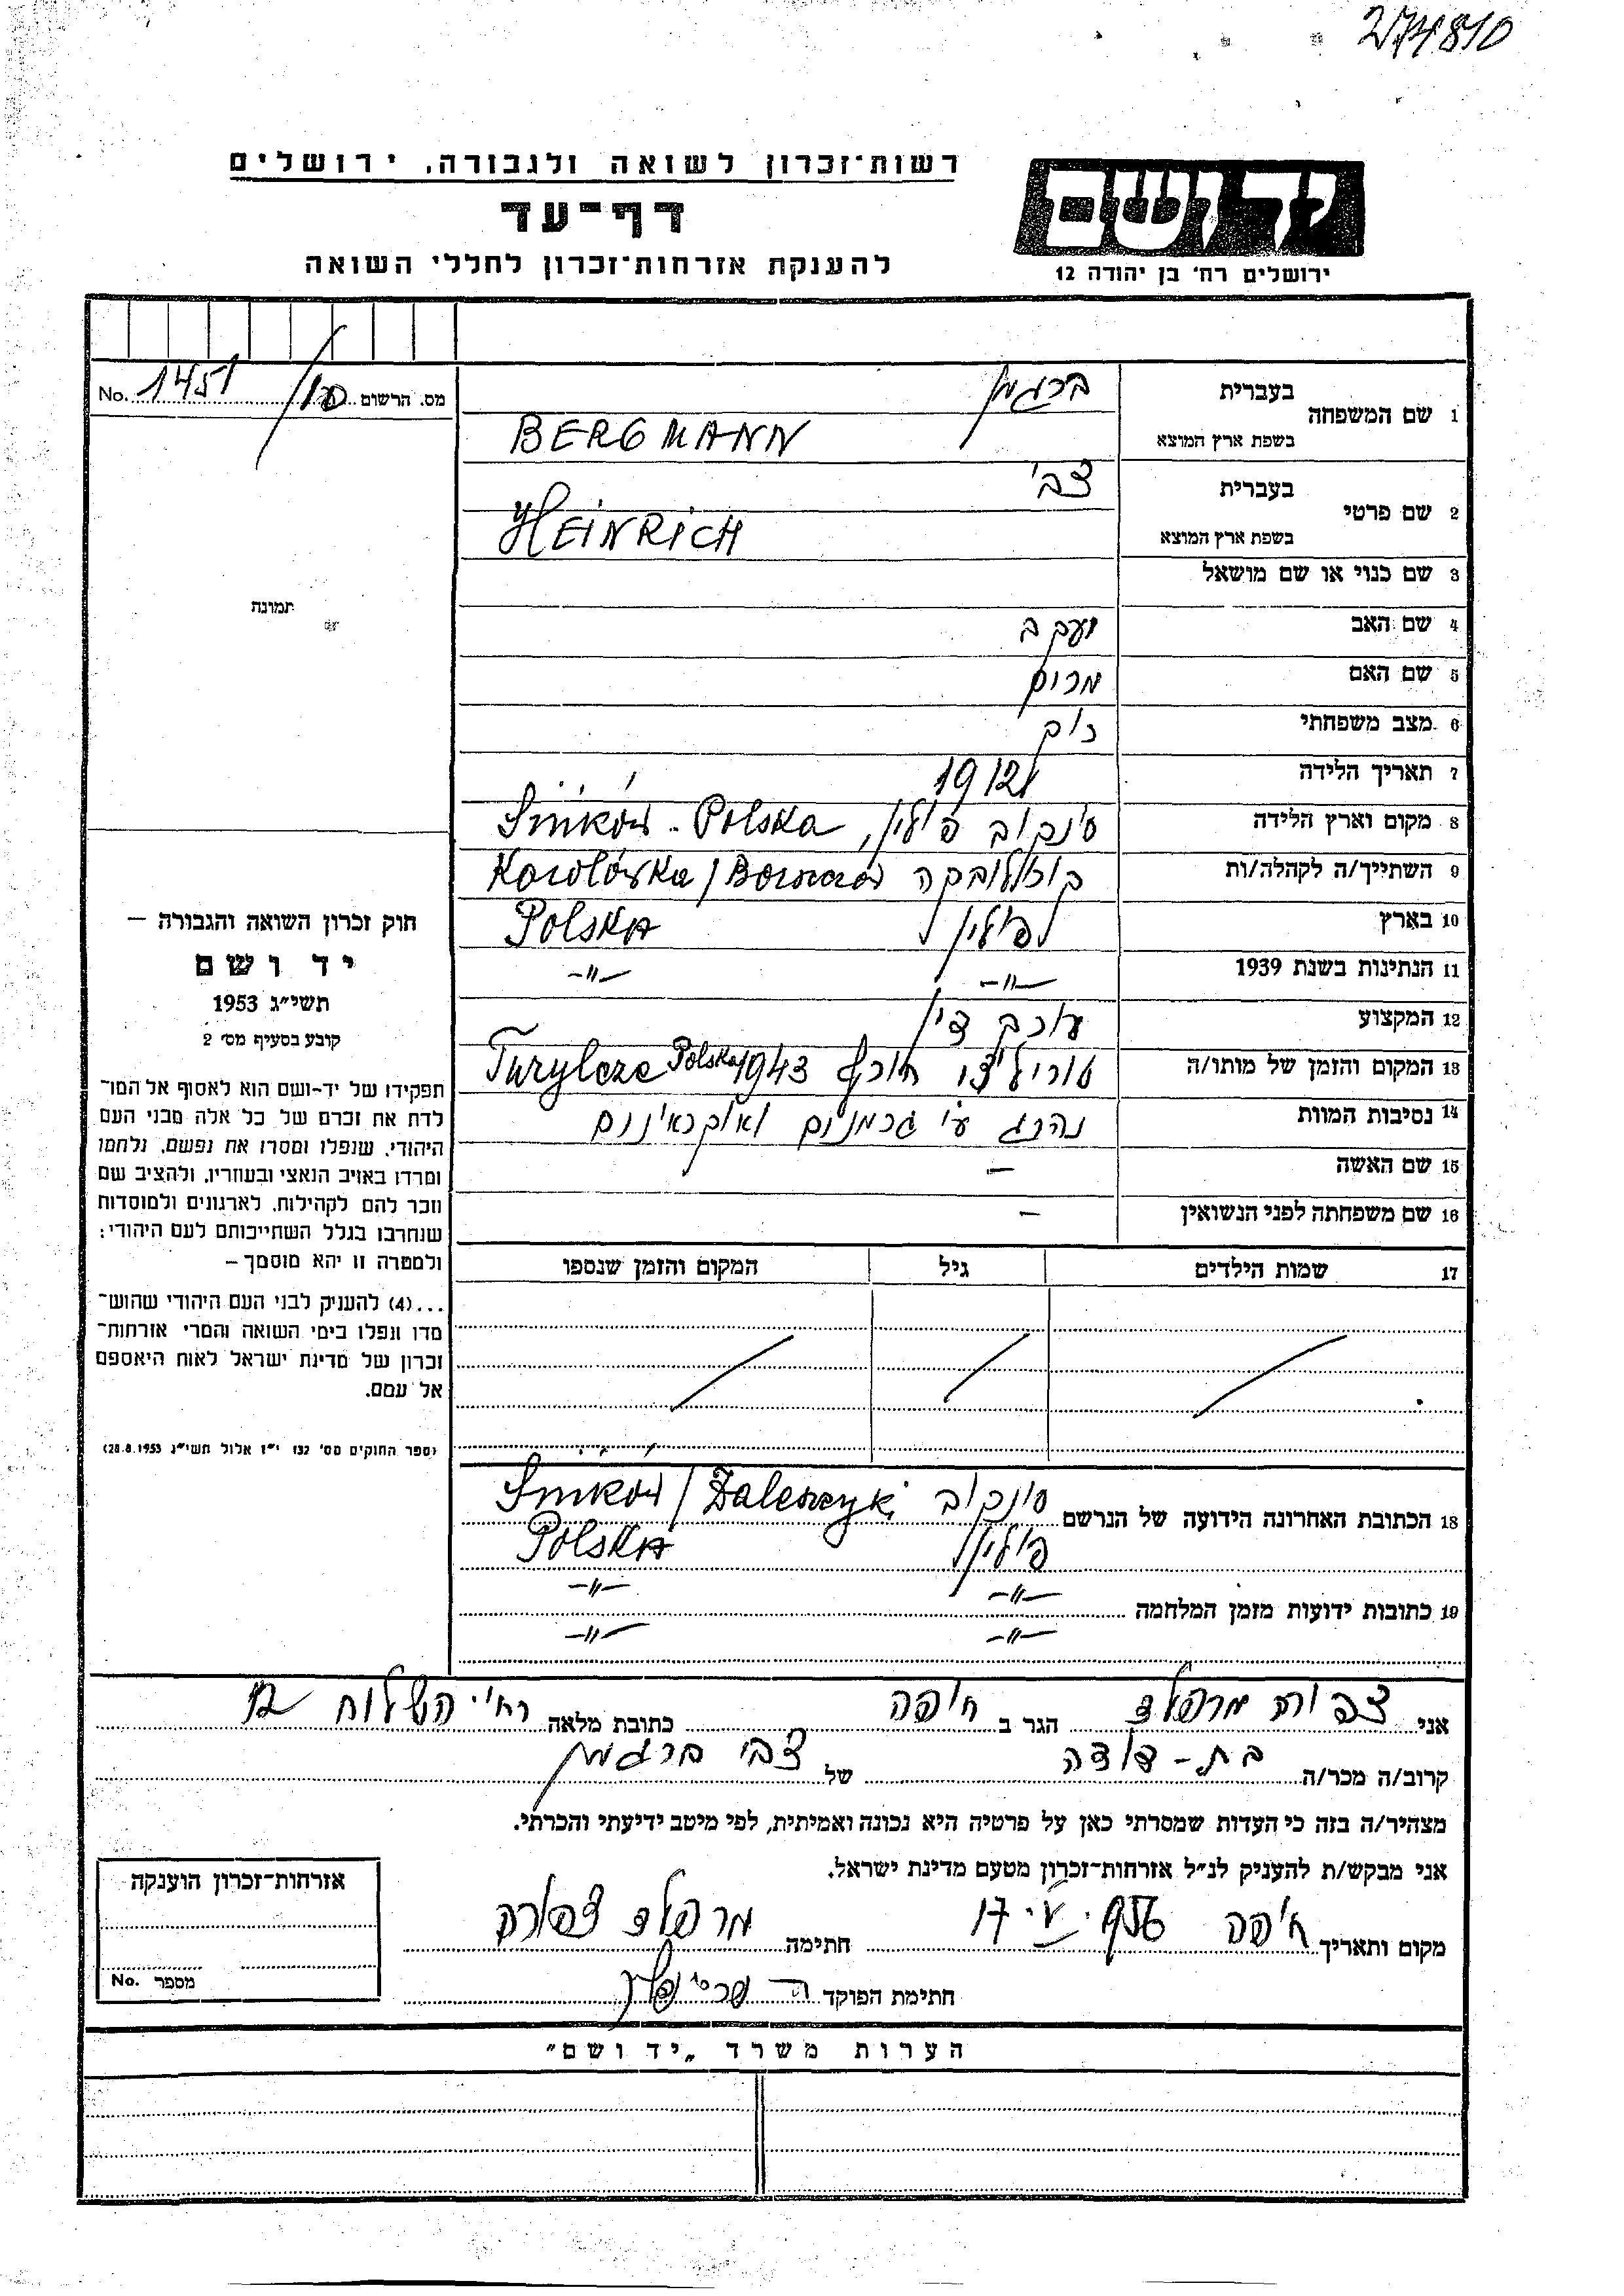 274810
רשות־זכרון לשואה ולגבורה, ירושלים
דף־עד
להענקת אזרחות־זכרון לחללי השואה
יד ושם
ירושלים רח' בן יהודה 12
No. 1451/10 מס. הרשום
1 שם המשפחה בעברית ברגמן
בשפת ארץ המוצא BERGMANN
2 שם פרטי בעברית צבי
בשפת ארץ המוצא HEINRICH
3 שם כנוי או שם מושאל
4 שם האב יעקב
5 שם האם מרים
6 מצב משפחתי רוק
7 תאריך הלידה 1912
8 מקום וארץ הלידה סינקוב פולין, Sińków - Polska
9 השתייך/ה לקהלה/ות Korolówka /
10 בארץ פולין Polska
11 הנתינות בשנת 1939 -"- -"-
12 המקצוע עורך דין
13 המקום והזמן של מותו/ה חורף 1943 Turylcze Polska
14 נסיבות המוות נהרג ע"י גרמנים ואוקראינים
15 שם האשה –
16 שם משפחתה לפני הנשואין –
17 שמות הילדים גיל המקום והזמן שנספו
18 הכתובת האחרונה הידועה של הנרשם סינקוב Sińków / Zaleszczyki
פולין Polska
19 כתובות ידועות מזמן המלחמה -"- -"-
-"- -"-
תמונה
חוק זכרון השואה והגבורה —
יד ושם
תשי"ג 1953
קובע בסעיף מס' 2
תפקידו של יד-ושם הוא לאסוף אל המו־
לדת את זכרם של כל אלה מבני העם
היהודי, שנפלו ומסרו את נפשם, נלחמו
ומרדו באויב הנאצי ובעוזריו, ולהציב שם
וזכר להם לקהילות, לארגונים ולמוסדות
שנחרבו בגלל השתייכותם לעם היהודי;
ולמטרה זו יהא מוסמך —
...(4) להעניק לבני העם היהודי שהוש־
מדו ונפלו בימי השואה והמרי אזרחות־
זכרון של מדינת ישראל לאות היאספם
אל עמם.
(ספר החוקים מס' 132 י"ז אלול תשי"ג 28.8.1953)
אני צפורה מרפלד הגר ב חיפה כתובת מלאה רח' השלוח 12
קרוב/ה מכר/ה בת-דודה של צבי ברגמן
מצהיר/ה בזה כי העדות שמסרתי כאן על פרטיה היא נכונה ואמיתית, לפי מיטב ידיעתי והכרתי.
אני מבקש/ת להעניק לנ"ל אזרחות־זכרון מטעם מדינת ישראל.
מקום ותאריך חיפה 17 חתימה מרפלד צפורה
חתימת הפוקד
אזרחות־זכרון הוענקה
מספר No.
הערות משרד „יד ושם"